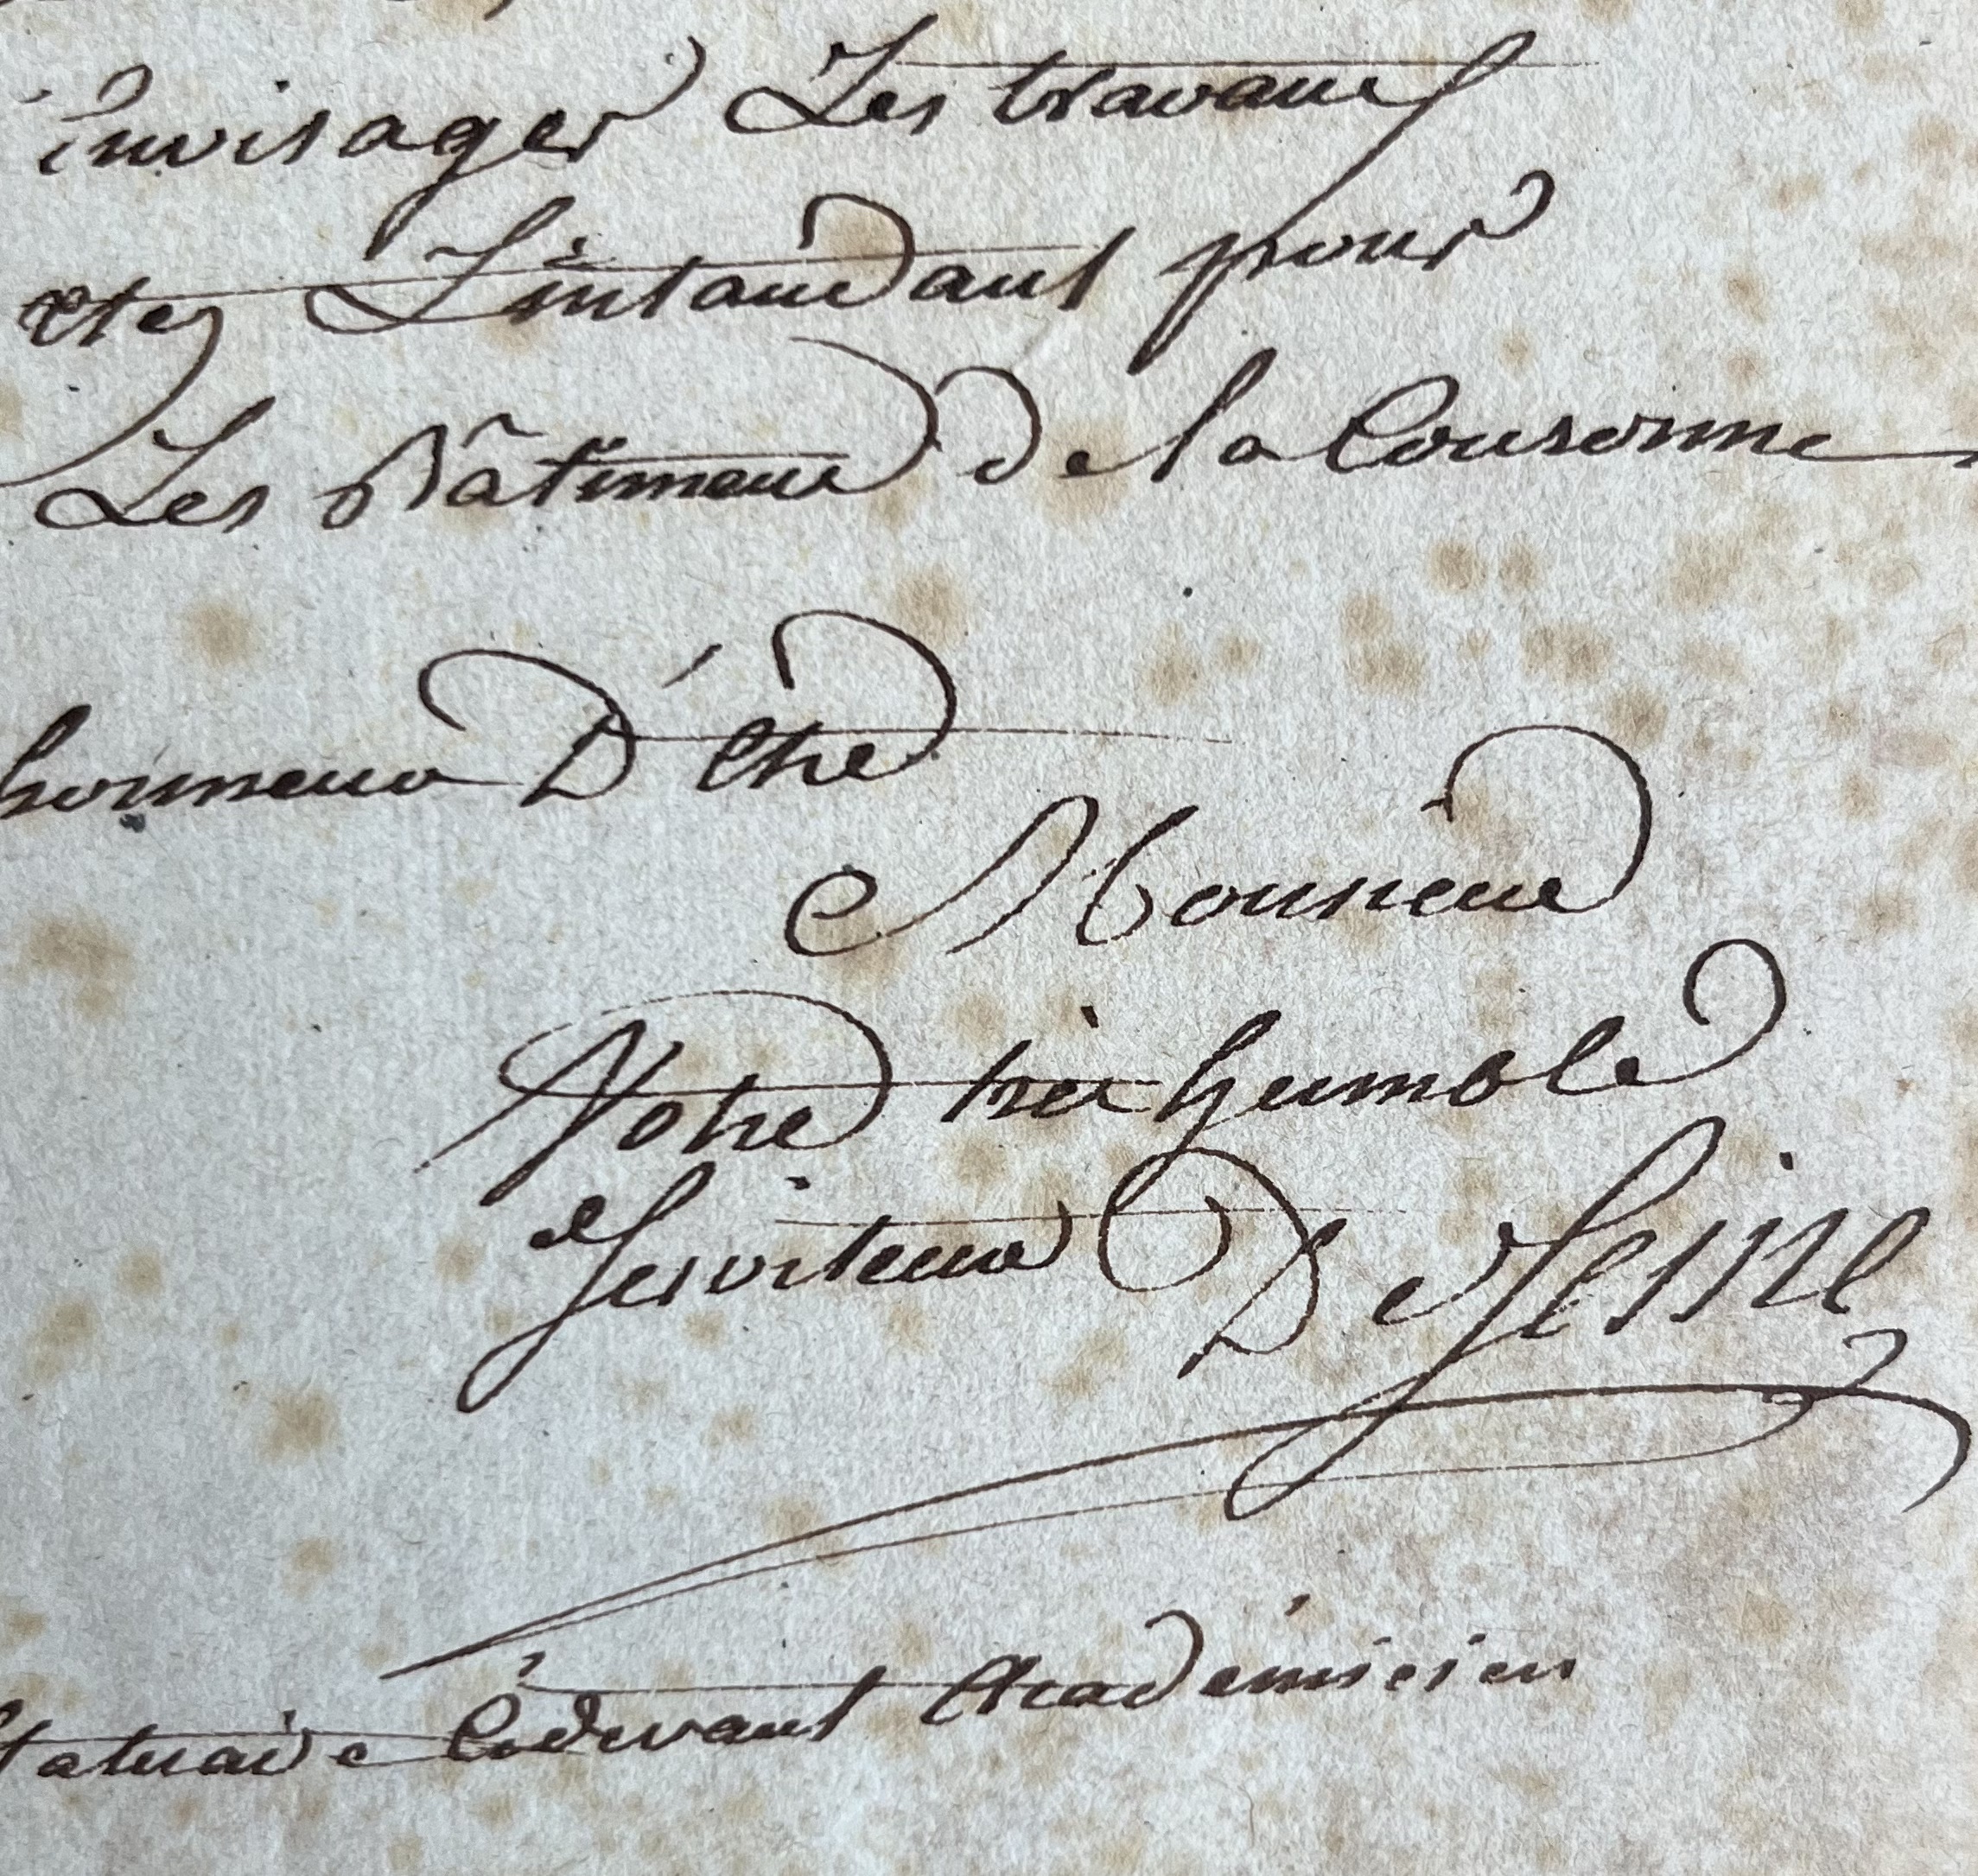 envisager Les travaux
etes L'intandant pour
Les Bâtimens de la Couronne
honneur D'être
Monsieur
Votre très humble
Serviteur DeSeine
statuaire Cidevant Académicien